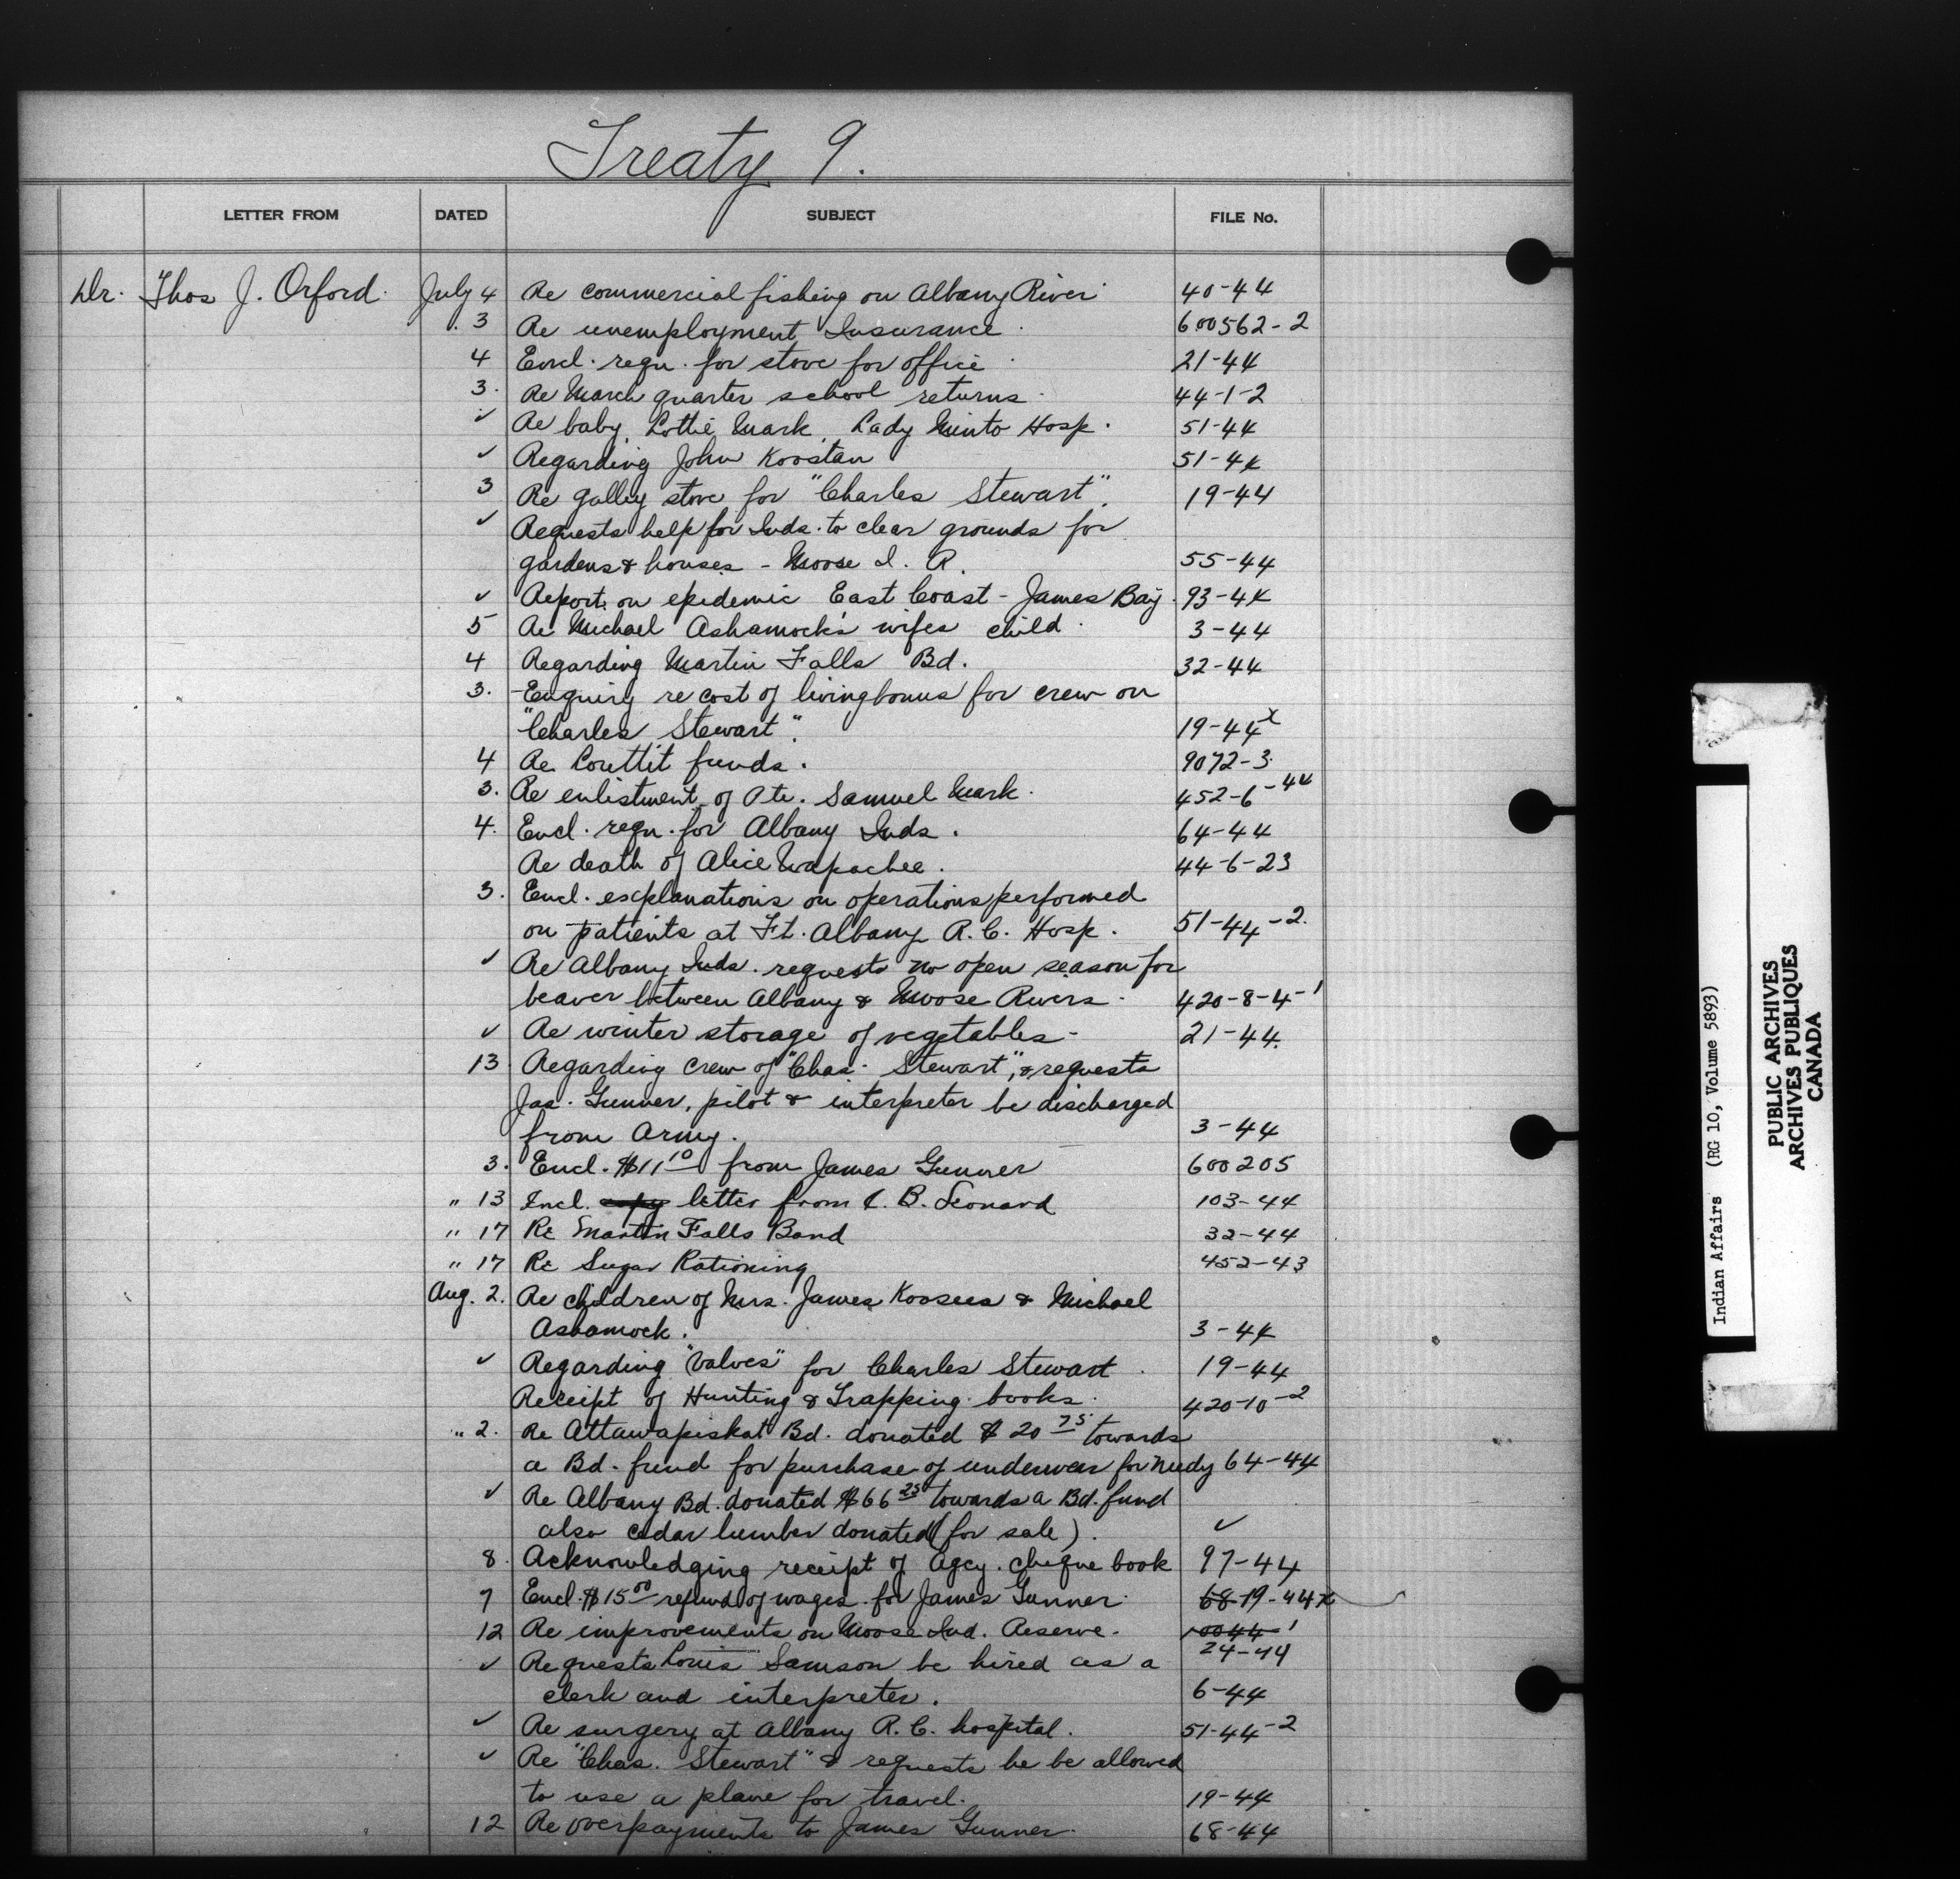 Treaty 9.
LETTER FROM DATED SUBJECT FILE No.
Dr. Thos J. Orford. July 4 Re commercial fishing on Albany River 40-44
3 Re unemployment Insurance. 600562-2
4 Encl. reqn. for stove for office 21-44
3. Re March quarter school returns. 44-1-2
✓ Re baby, Lottie Mark, Lady Minto Hosp. 51-44
✓ Regarding John Koostan 51-44
3 Re galley stove for "Charles Stewart". 19-44
✓ Requests help for Inds. to clear grounds for
gardens & houses - Moose I. R. 55-44
✓ Report on epidemic East Coast - James Bay. 93-44
5 Re Michael Ashamock's wifes child. 3-44
4 Regarding Martin Falls Bd. 32-44
3. Enquiry re cost of living bonus for crew on
"Charles Stewart". 19-44x
4 Re Louttit funds. 9072-3.
3. Re enlistment of Pte. Samuel Mark. 452-6-44
4. Encl. reqn. for Albany Inds. 64-44
Re death of Alice Wapachee. 44-6-23
3. Encl. explanations on operations performed
on patients at Ft. Albany R.C. Hosp. 51-44-2.
✓ Re Albany Inds. requests no open season for
beaver between Albany & Moose Rivers. 420-8-4-1
✓ Re winter storage of vegetables - 21-44.
13. Regarding crew of "Chas. Stewart", & requests
Jas. Gunner, pilot & interpreter be discharged
from Army. 3-44
3. Encl. $11 10 from James Gunner 600205
" 13 Incl. copy letter from C. B. Leonard 103-44
" 17 Re Martin Falls Band 32-44
" 17 Re Sugar Rationing 452-43
Aug. 2. Re children of Mrs. James Koosees & Michael
Ashamock. 3-44
✓ Regarding "Valves" for Charles Stewart. 19-44
Receipt of Hunting & Trapping books. 420-10-2
" 2. Re Attawapiskat Bd. donated $20 75 towards
a Bd. fund for purchase of underwear for needy 64-44
✓ Re Albany Bd. donated $66 25 towards a Bd. fund
also cedar lumber donated (for sale). ✓
8. Acknowledging receipt of Agcy. cheque book 97-44
7 Encl. $15 00 refund of wages for James Gunner. 68-19-44x
12 Re improvements on Moose Ind. Reserve. 24-44
✓ Requests Louis Samson be hired as a
clerk and interpreter. 6-44
✓ Re surgery at Albany R.C. hospital. 51-44-2
✓ Re "Chas. Stewart" & requests he be allowed
to use a plane for travel. 19-44
12 Re overpayments to James Gunner. 68-44
Indian Affairs (RG 10, Volume 5893)
PUBLIC ARCHIVES
ARCHIVES PUBLIQUES
CANADA